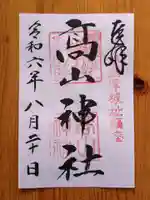 奉拝
高山神社
令和六年八月二十日